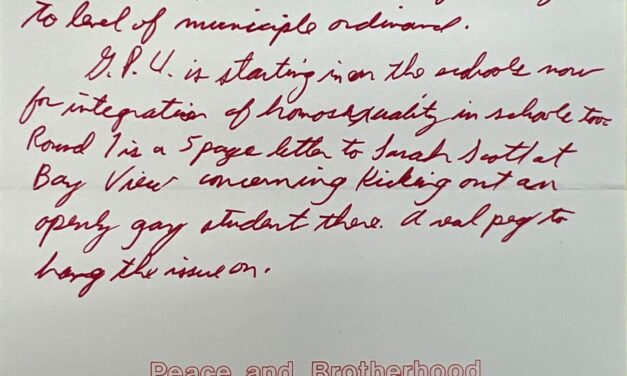 to level of municiple ordinand.
G. P. U. is starting in on the schools now
for integration of homosexuality in schools too.
Round 1 is a 5 page letter to Sarah Scott at
Bay View concerning Kicking out an
openly gay student there. A real peg to
hang the issue on.
Peace and Brotherhood